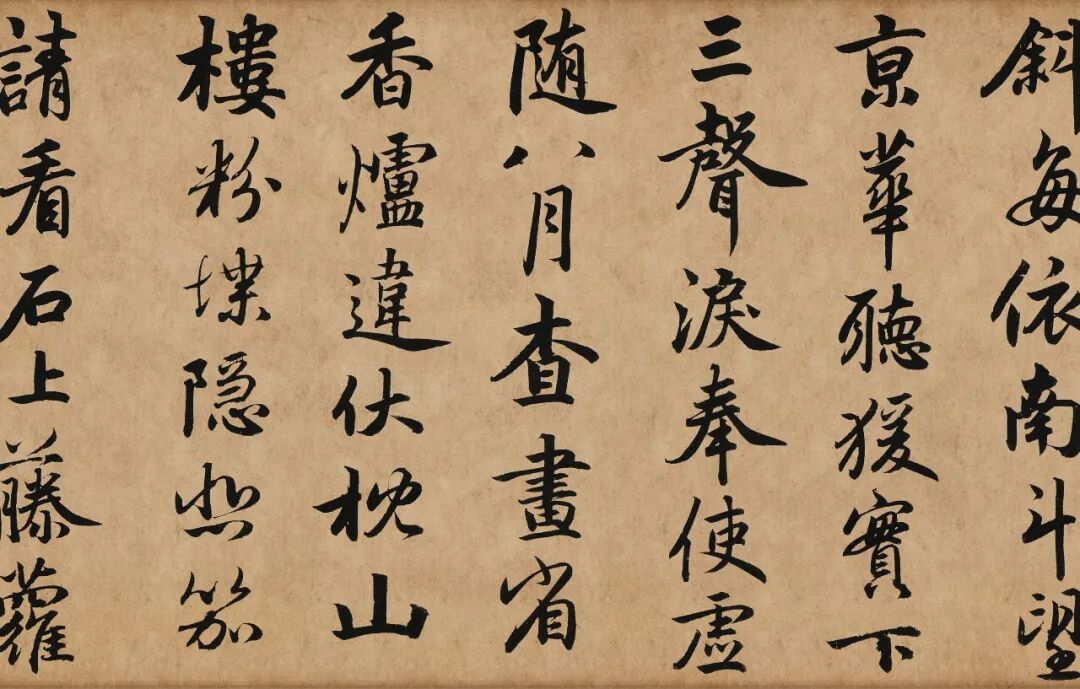 斜每依南斗望
亰華聽猨實下
三聲淚奉使虛
随八月查畫省
香爐違伏枕山
樓粉堞隐悲笳
請看石上藤蘿